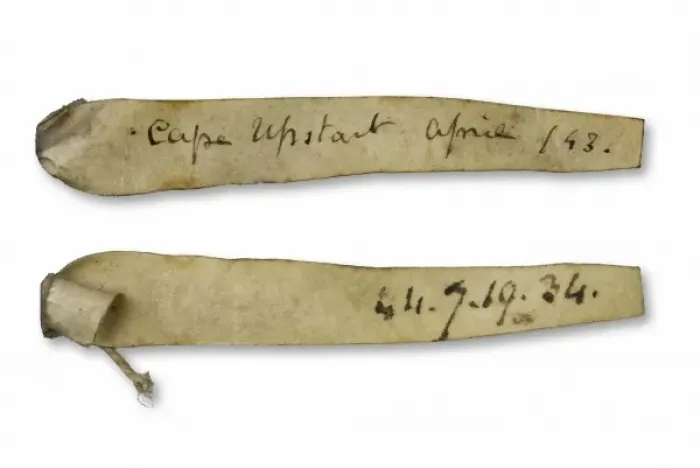 Cape Upstart April /43.
44.7.19.34.